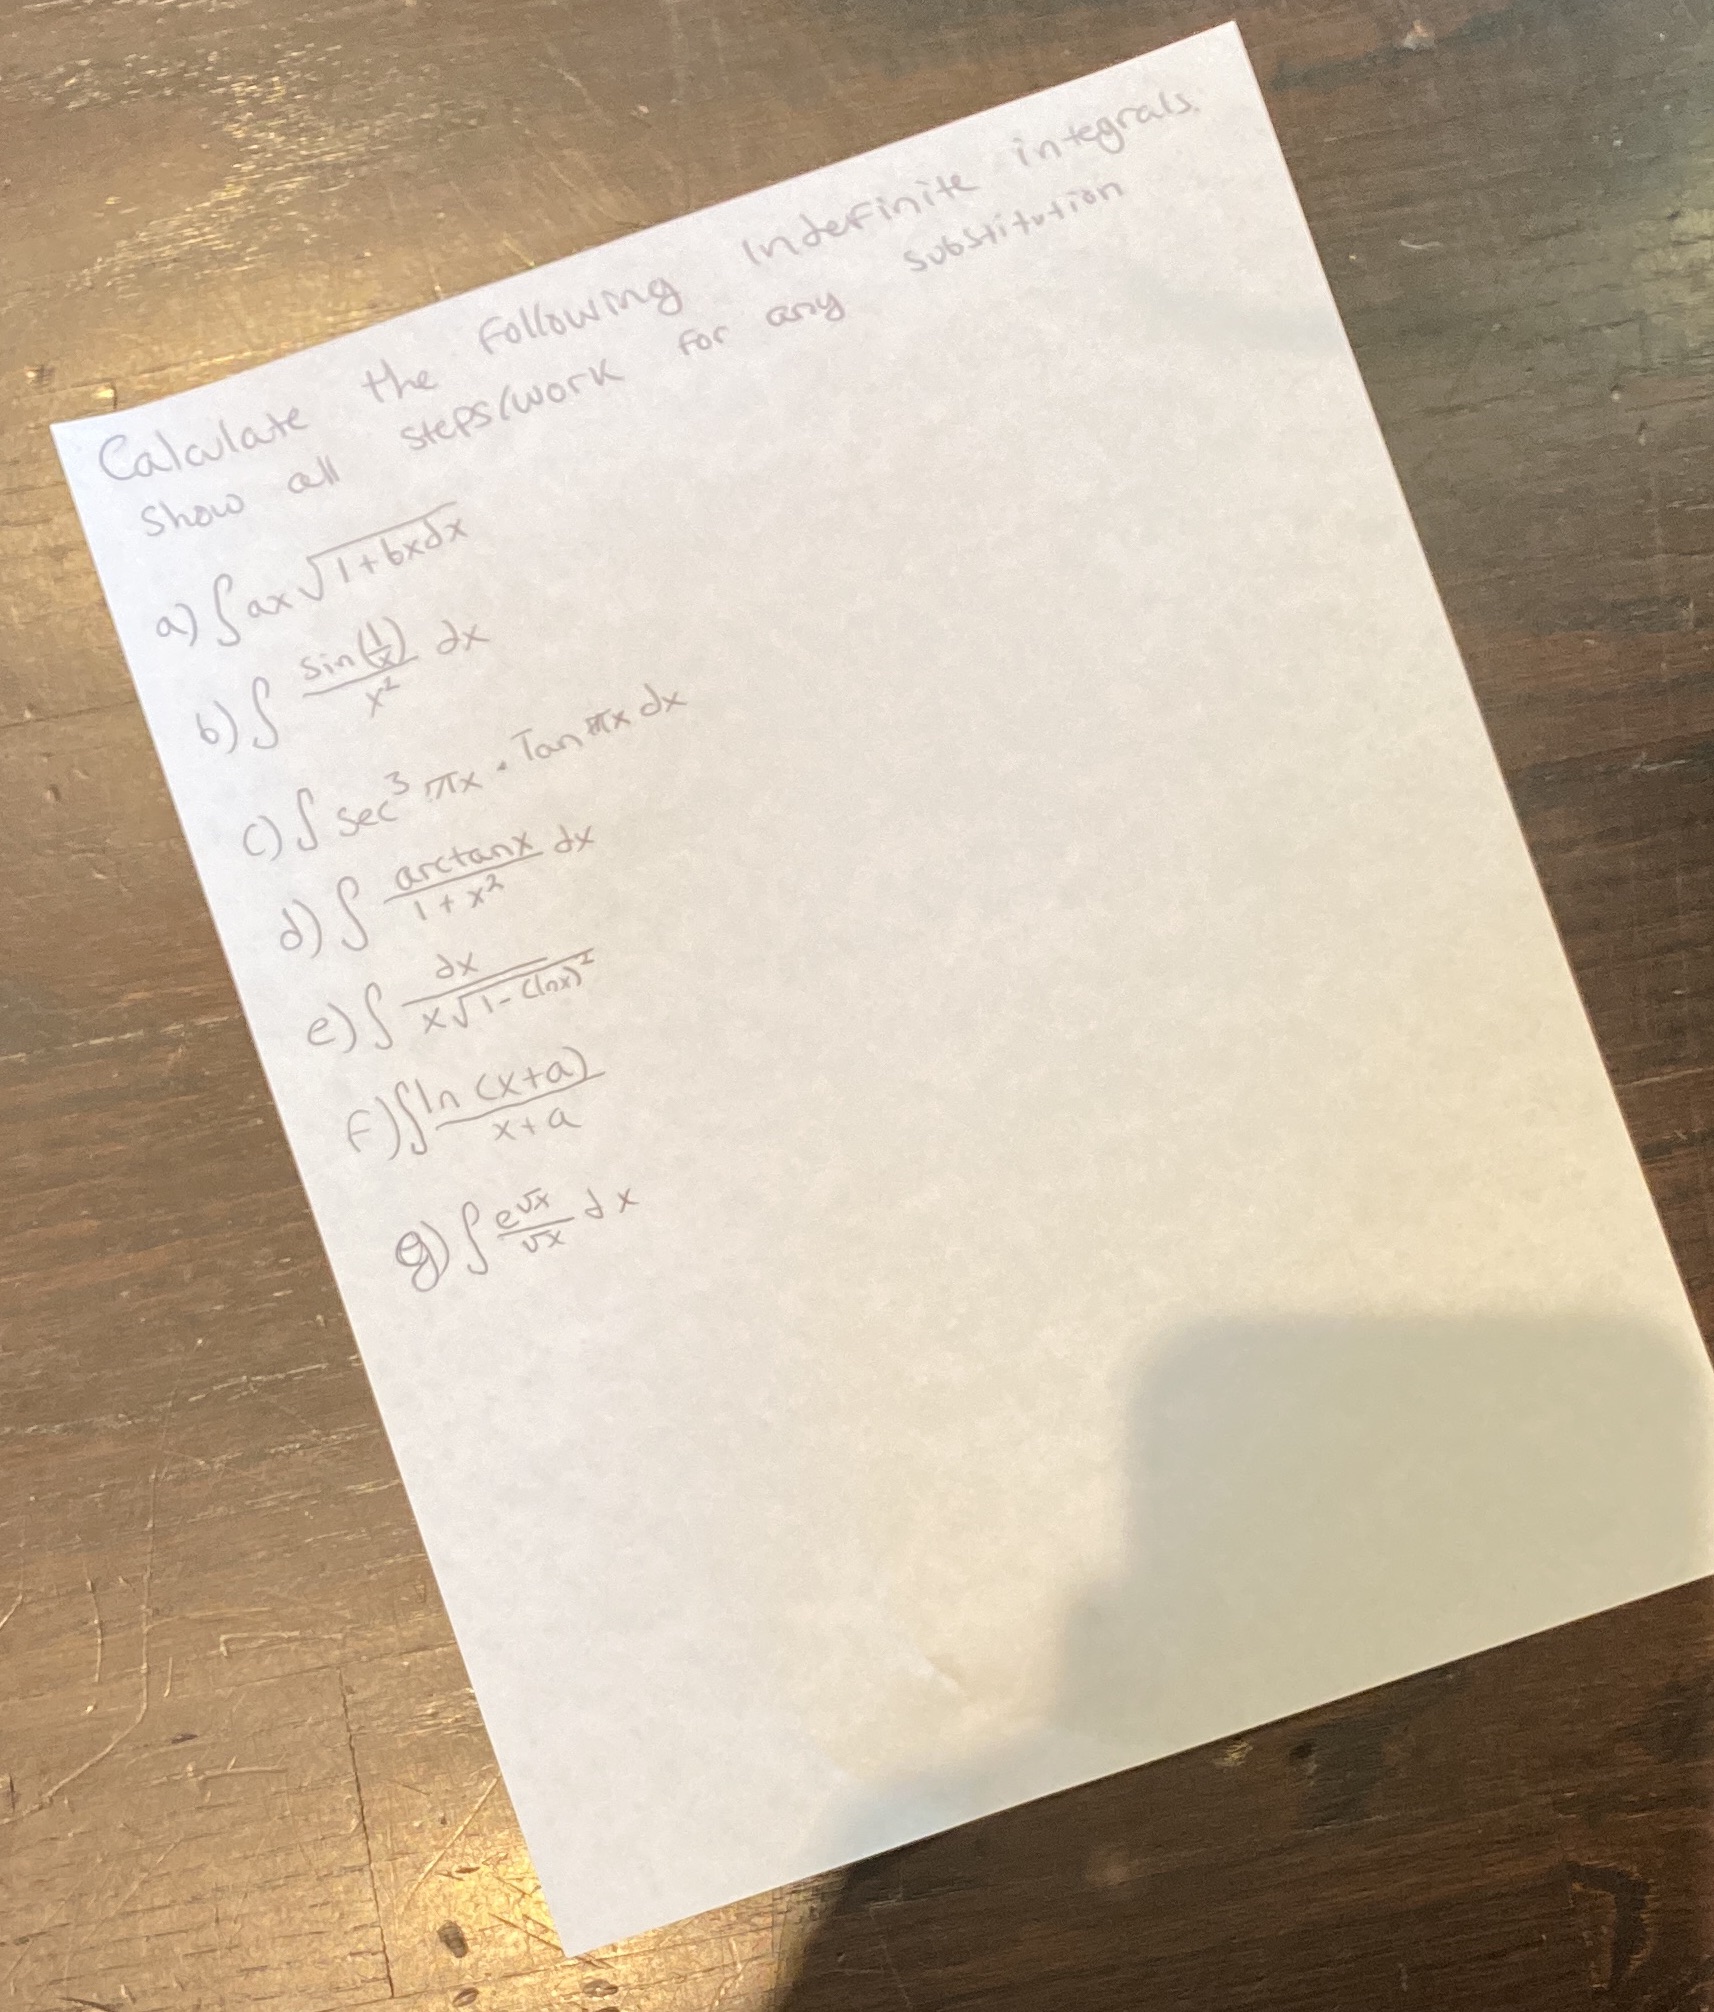 Calculate the following indefinite integrals.
Show all steps/work for any substitution
a) ∫ax√(1+bxdx)
b) ∫ sin(1/x)/x² dx
c) ∫ sec³ πx · Tan πx dx
d) ∫ arctanx/(1+x²) dx
e) ∫ dx/(x√(1-(lnx)²))
f) ∫ ln(x+a)/(x+a)
g) ∫ e^√x/√x dx